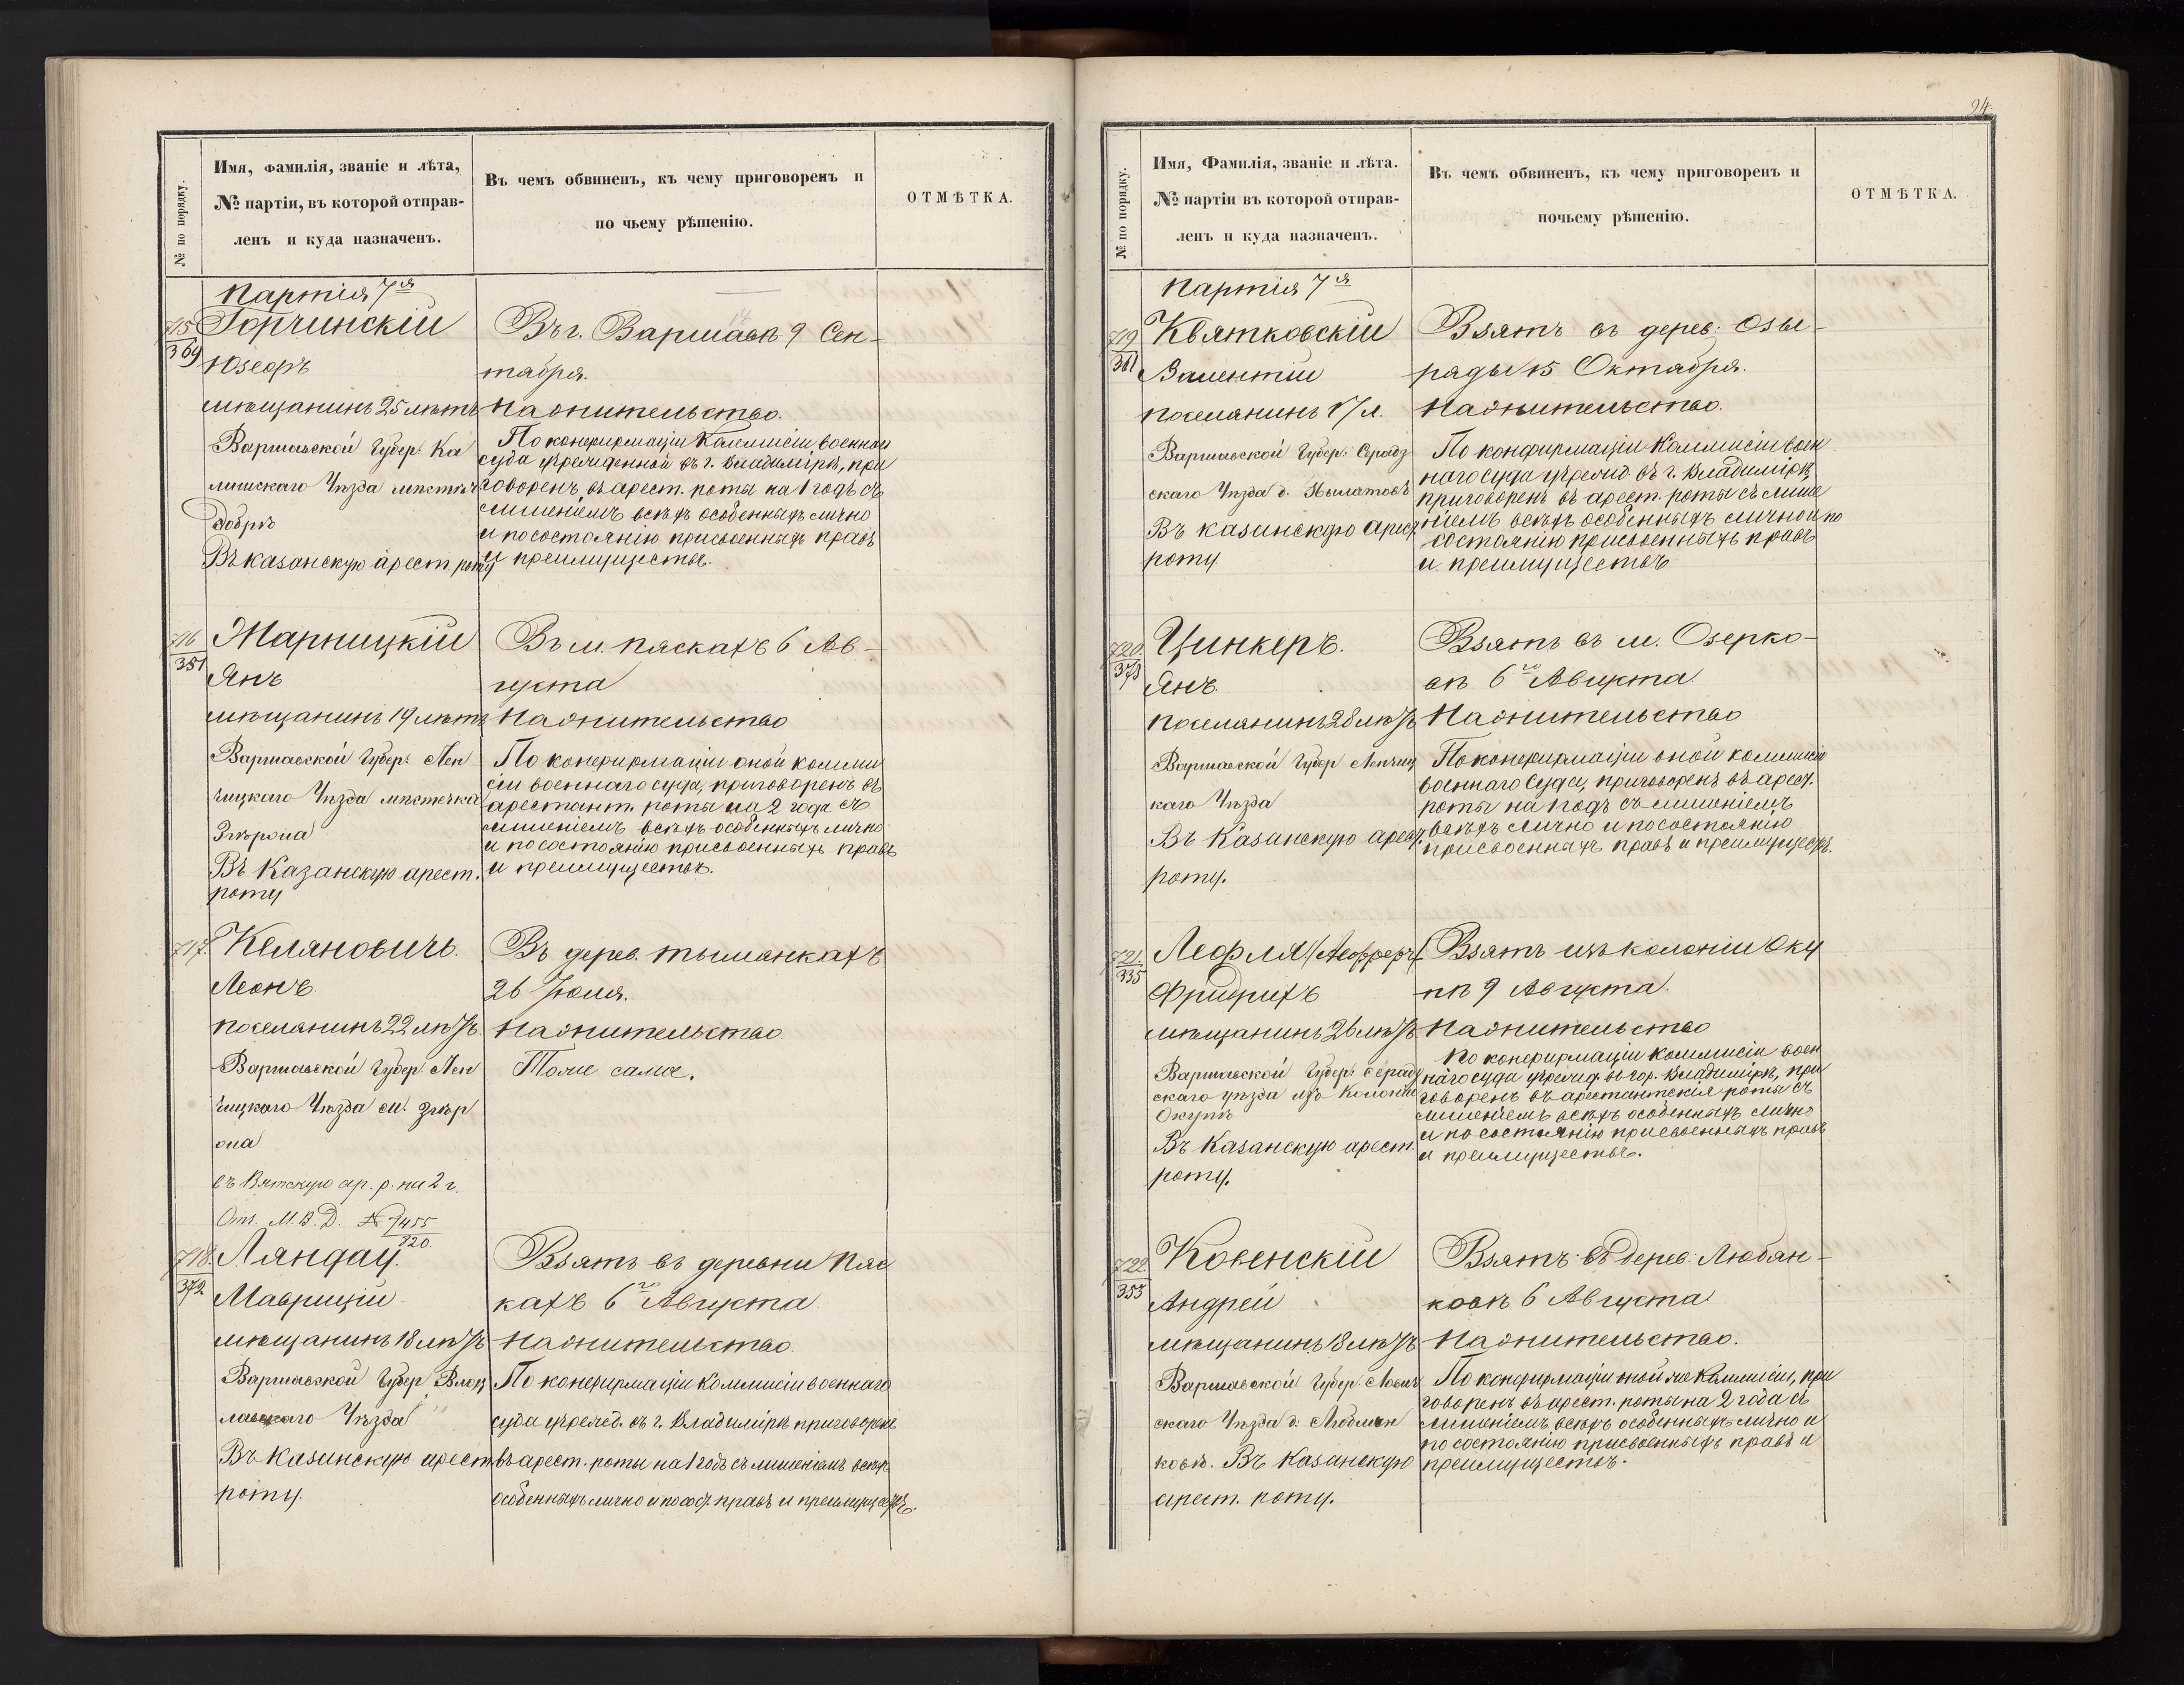 № по порядку.
Имя, фамилія, званіе и лѣта,
№ партіи, въ которой отправ-
ленъ и куда назначенъ.
Въ чемъ обвиненъ, къ чему приговоренъ и
по чьему рѣшенію.
ОТМѢТКА.
Партія 7я
715
369
Горчинскій
Юзефъ
мѣщанинъ 25 лѣтъ
Варшавской Губер. Ка
лишскаго Уѣзда мѣстеч
Добрѣ
Въ казанскую арест. роту
Въ г. Варшавѣ 9 Сен-
тября.
На жительство.
По конфирмаціи Коммисіи военнаго
суда учрежденной въ г. Владимірѣ, при
говоренъ въ арест. роты на 1 годъ съ
лишеніемъ всѣхъ особенныхъ лично
и по состоянію присвоенныхъ правъ
и преимуществъ.
716
351
Жарницкій
Янъ
мѣщанинъ 19 лѣтъ
Варшавской Губер. Лен
чицкаго Уѣзда мѣстечка
Въ Казанскую арест.
роту
Въ м. Пяскахъ 6 Ав-
густа
На жительство
По конфирмаціи оной комми
сіи военнаго суда, приговоренъ въ
арестант. роты на 2 года съ
лишеніемъ всѣхъ особенныхъ лично
и по состоянію присвоенныхъ правъ
и преимуществъ.
717.
Келяновичъ.
Леонъ
поселянинъ 22 лѣтъ.
Варшавской Губер. Лен
чицкаго Уѣзда м.
въ Вятскую ар. р. на 2 г.
Отз. М.В.Д. № 7455
820.
Въ дерев. Тыманкахъ
26 Іюля.
На жительство
Тоже самое.
718.
372
Ляндау.
Маврицій
мѣщанинъ 18 лѣтъ
Варшавской Губер Влоц
лавскаго Уѣзда
Въ Казанскую арест
роту.
Взятъ въ деревни Пяс
кахъ 6го Августа.
На жительство.
По конфирмаціи Коммисіи военнаго
суда учрежд. въ г. Владимірѣ приговоренъ
въ арест. роты на 1 годъ съ лишеніемъ всѣхъ
особенныхъ лично и по сост. правъ и преимуществъ.
24.
№ по порядку.
Имя, Фамилія, званіе и лѣта.
№ партіи въ которой отправ-
ленъ и куда назначенъ.
Въ чемъ обвиненъ, къ чему приговоренъ и
почьему рѣшенію.
ОТМѢТКА.
Партія 7я
719
361
Квятковскій
Валентій
поселянинъ 17 л.
Варшавской Губер. Серадз
скаго Уѣзда д.
Въ казанскую арест.
роту
Взятъ въ дерев. Озы-
рады 15 Октября.
На жительство.
По конфирмаціи Коммисіи воен
наго суда учрежд. въ г. Владимірѣ
приговоренъ въ арест. роты съ лише
ніемъ всѣхъ особенныхъ лично и по
состоянію присвоенныхъ правъ
и преимуществъ
720.
373
Цинкеръ.
Янъ.
Поселянинъ 28 лѣтъ
Варшавской Губер Ленчиц
каго Уѣзда
Въ Казанскую арест.
роту.
Взятъ въ м. Озерко-
вѣ 6го Августа
На жительство
По конфирмаціи оной коммисіи
военнаго суда, приговоренъ въ арест.
роты на 1 годъ съ лишеніемъ
всѣхъ лично и по состоянію
присвоенныхъ правъ и преимуществъ.
721.
335
Лефля (Леффлеръ)
Фридрихъ
мѣщанинъ 26 лѣтъ
Варшавской Губер. Серадз
скаго уѣзда изъ Колоніи
Окупъ
Въ Казанскую арест.
роту.
Взятъ изъ колоніи Оку
пѣ 9 Августа.
На жительство
По конфирмаціи коммисіи воен
наго суда учрежд. въ гор. Владимірѣ, при
говоренъ въ арестантскія роты съ
лишеніемъ всѣхъ особенныхъ лично
и по состоянію присвоенныхъ правъ
и преимуществъ.
722.
353
Ковенскій
Андрей
мѣщанинъ 18 лѣтъ
Варшавской Губер. Лович
скаго Уѣзда д. Любмян
ковѣ. Въ Казанскую
арест. роту.
Взятъ въ дерев. Любян-
ковѣ 6 Августа
На жительство.
По конфирмаціи оной же Коммисіи, при
говоренъ въ арест. роты на 2 года съ
лишеніемъ всѣхъ особенныхъ лично и
по состоянію присвоенныхъ правъ и
преимуществъ.